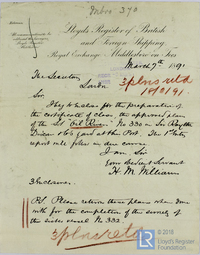 Lloyd's Register of British
and Foreign Shipping,
Royal Exchange, Middlesbro-on-Tees
March 9th 1891
The Secretary
London
3 plns retd
18/3/91
Sir
I beg to enclose for the preparation of
the certificate of class the approved plans
of the
No 330 in Sir Raylton
Dixon & Co's yard at this Port. The
report will follow in due course.
I am Sir
Your Obedient Servant
H. M. William
3 Enclosures
P.S. Please return these plans when done
with for the completion of the survey of
the sister vessel No 332.
3 plns retd
© 2018
Lloyd's Register
Foundation